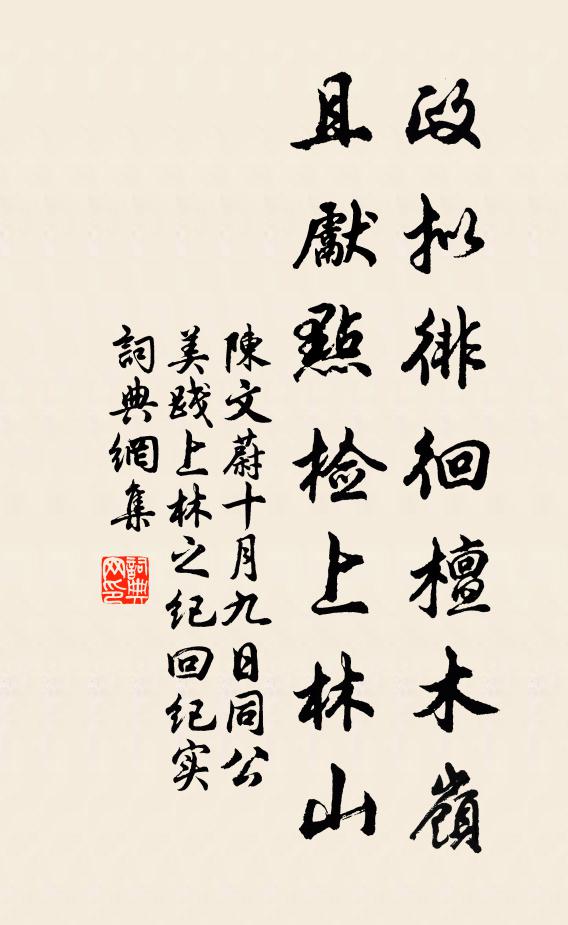 政拟徘徊檀木嶺
且獻點檢上林山
陳文蔚十月九日同公
美践上林之纪回纪实
詞典網集
詞典网印